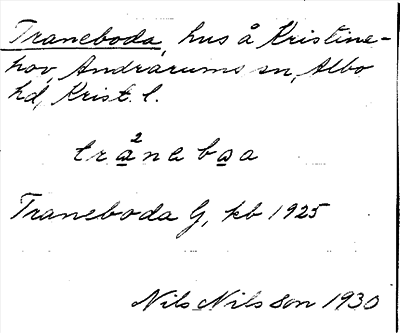 Traneboda, hus å Kristine-
hov, Andrarums sn, Albo
hd, Krist. l.
tra²nebaa
Traneboda G, kb 1925
Nils Nilsson 1930